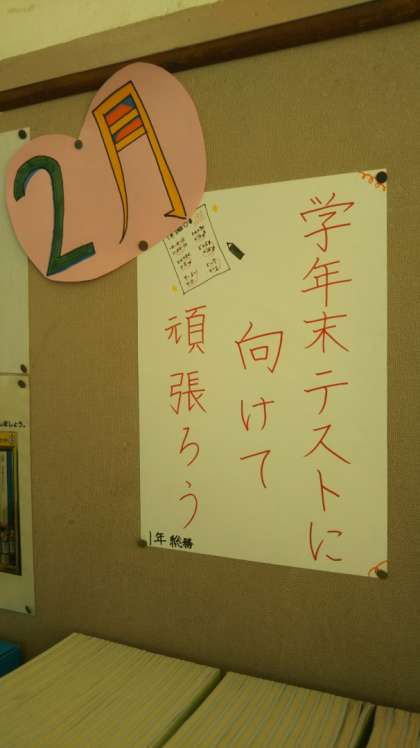 2月
学年末テストに
向けて
頑張ろう
1年 総務
ましょう。